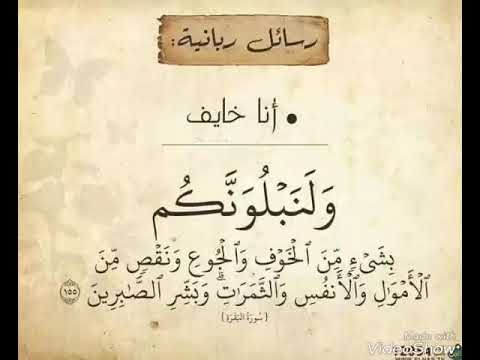 رسائل ربانية:
• أنا خايف
وَلَنَبْلُوَنَّكُم
بِشَىْءٍ مِّنَ ٱلْخَوْفِ وَٱلْجُوعِ وَنَقْصٍ مِّنَ
ٱلْأَمْوَٰلِ وَٱلْأَنفُسِ وَٱلثَّمَرَٰتِ ۗ وَبَشِّرِ ٱلصَّٰبِرِينَ ١٥٥
[سُورَةُ البَقَرَةِ]
Made with
VideoShow